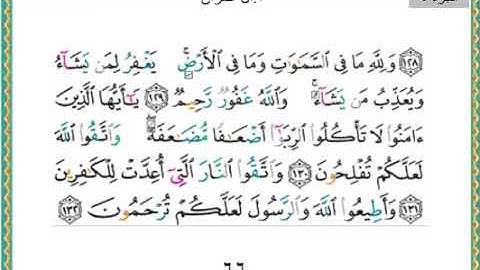 ١٢٨ وَلِلَّهِ مَا فِى ٱلسَّمَٰوَٰتِ وَمَا فِى ٱلْأَرْضِ ۚ يَغْفِرُ لِمَن يَشَآءُ
وَيُعَذِّبُ مَن يَشَآءُ ۚ وَٱللَّهُ غَفُورٌ رَّحِيمٌ ١٢٩ يَٰٓأَيُّهَا ٱلَّذِينَ
ءَامَنُوا۟ لَا تَأْكُلُوا۟ ٱلرِّبَوٰٓا۟ أَضْعَٰفًا مُّضَٰعَفَةً ۖ وَٱتَّقُوا۟ ٱللَّهَ
لَعَلَّكُمْ تُفْلِحُونَ ١٣٠ وَٱتَّقُوا۟ ٱلنَّارَ ٱلَّتِىٓ أُعِدَّتْ لِلْكَٰفِرِينَ
١٣١ وَأَطِيعُوا۟ ٱللَّهَ وَٱلرَّسُولَ لَعَلَّكُمْ تُرْحَمُونَ ١٣٢
٦٦